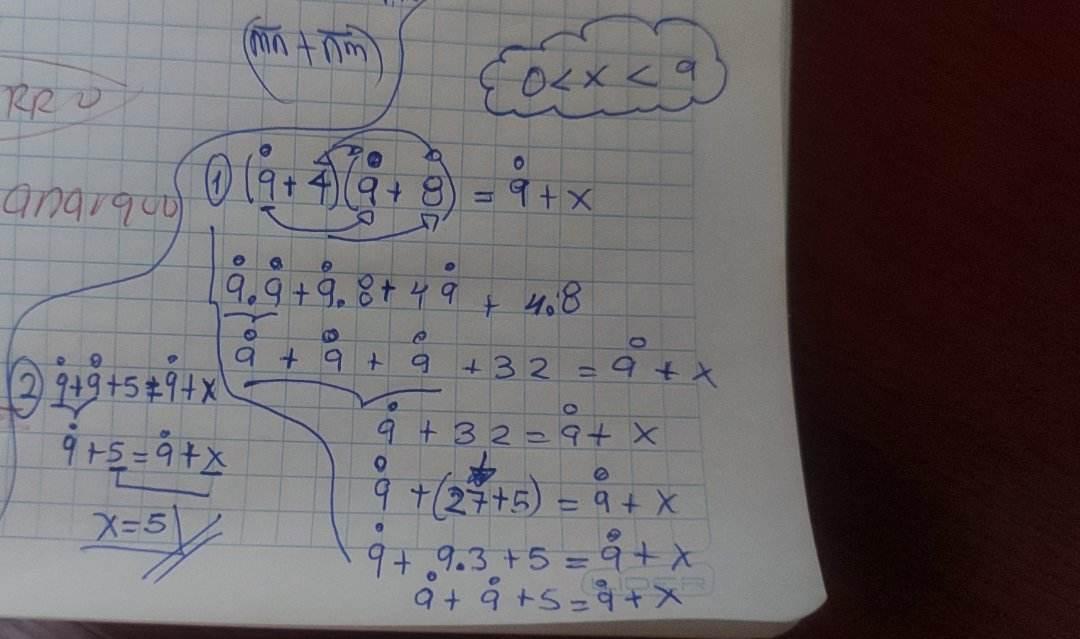 (m̅n̅ + n̅m̅)
0 < x < 9
RR
① (9̊ + 4)(9̊ + 8) = 9̊ + x
9̊.9̊ + 9̊.8 + 4 9̊ + 4.8
9̊ + 9̊ + 9̊ + 32 = 9̊ + x
9̊ + 32 = 9̊ + x
9̊ + (27+5) = 9̊ + x
9̊ + 9.3 + 5 = 9̊ + x
9̊ + 9̊ + 5 = 9̊ + x
② 9̊ + 9̊ + 5 = 9̊ + x
9̊ + 5 = 9̊ + x
x = 5